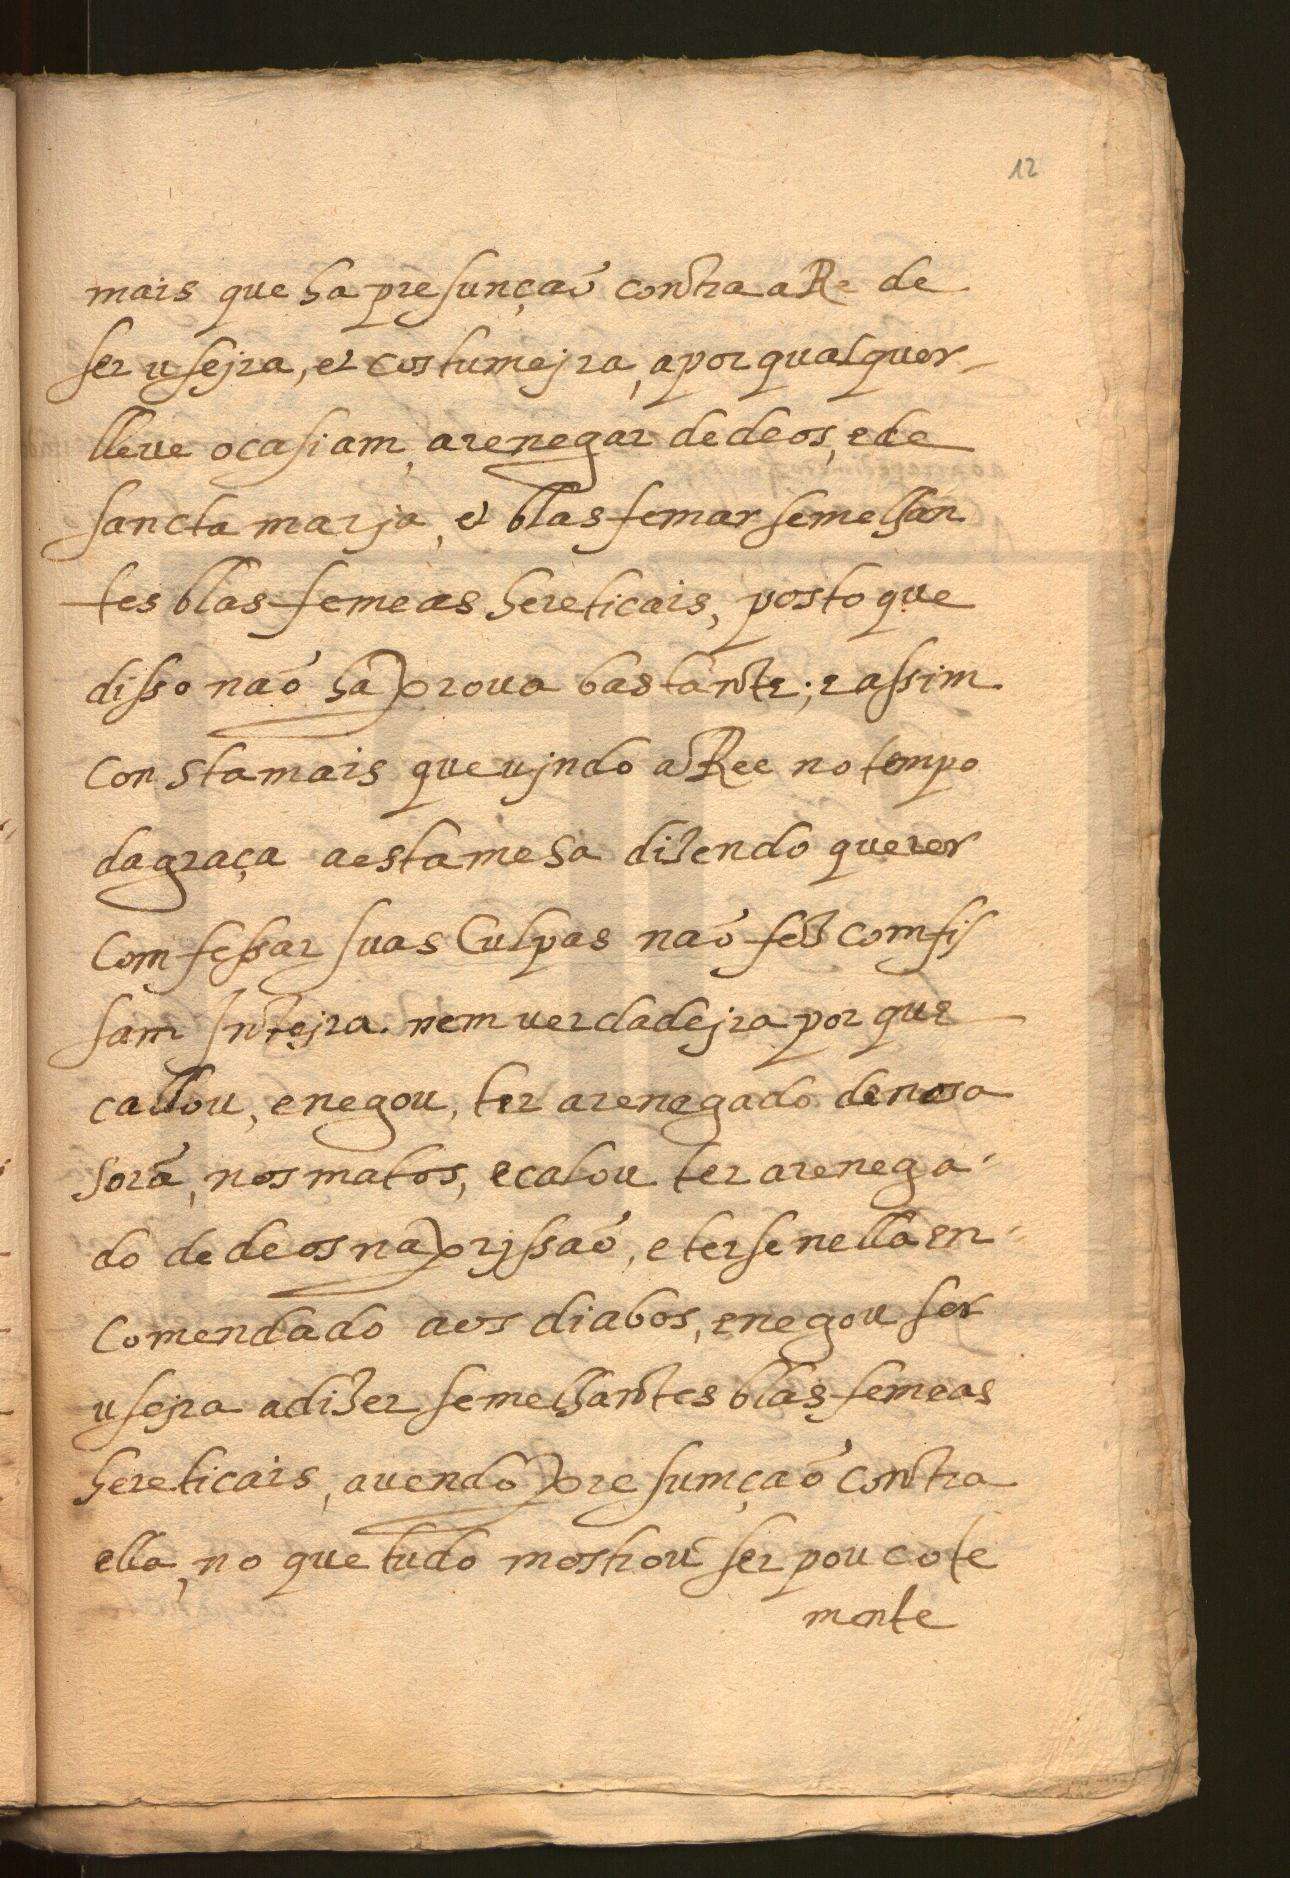 12
mais que ha presunçaõ contra a Re de
ser useira, et costumejra, a por qualquer
lleve ocasiam, arenegar de deos, e de
sancta marja, et blasfemar semelhan
tes blasfemeas hereticais, posto que
disso naõ ha prova bastante; e assim
consta mais que vjndo a Ree no tempo
da graça a esta mesa dizendo querer
comfessar suas culpas naõ fez comfis
sam Intejra. nem verdadejra por que
callou, e negou, ter arenegado de nosa
sorã, nos matos, e calou ter arenega
do de deos na prjssaõ, e terse nella en
comendado aos diabos, e negou ser
usejra a dizer semelhantes blasfemeas
hereticais, avendo presumçaõ contra
ella, no que tudo mostrou ser pouco te
mente